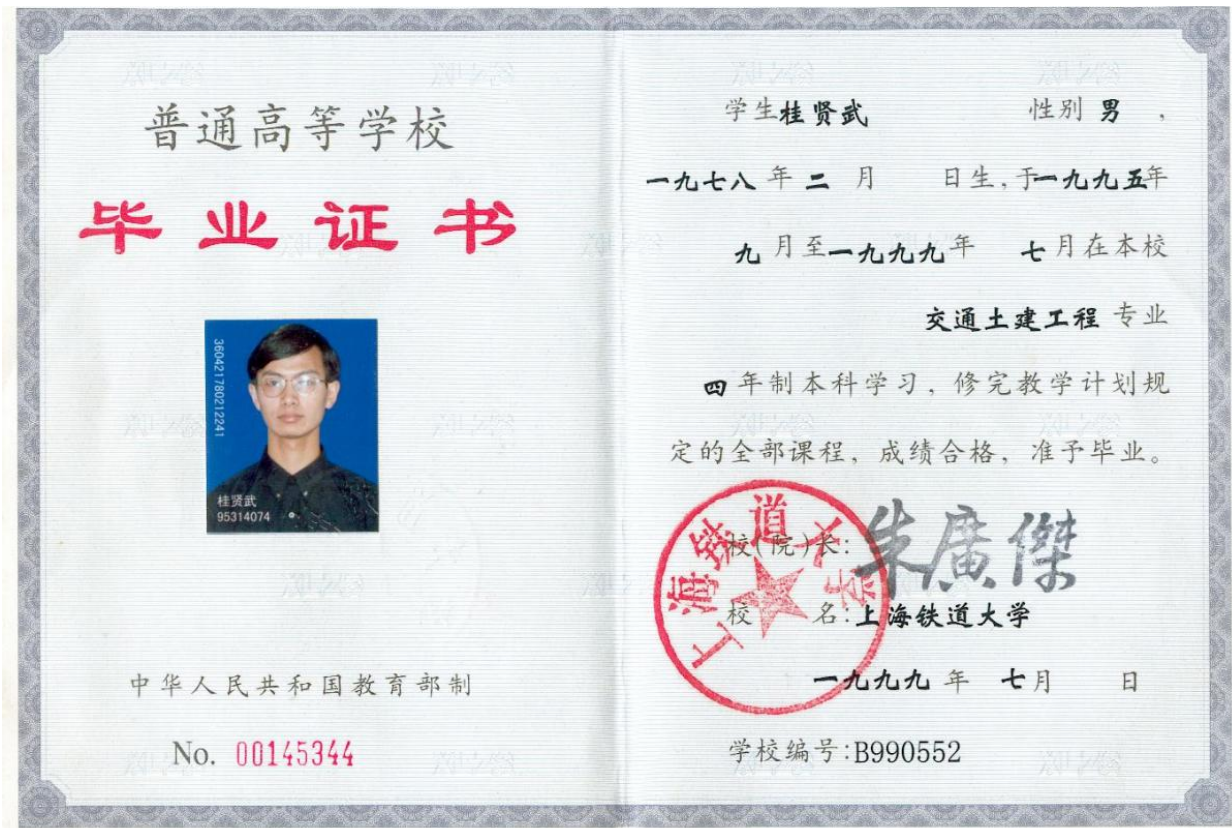 普通高等学校
毕业证书
360421780212241
桂贤武
95314074
中华人民共和国教育部制
No. 00145344
学生桂贤武 性别 男 ,
一九七八 年 二 月 日生,于一九九五年
九 月至一九九九年 七月在本校
交通土建工程 专业
四 年制本科学习,修完教学计划规
定的全部课程,成绩合格,准予毕业。
上海铁道大学
校(院)长:朱廣傑
校 名:上海铁道大学
一九九九 年 七月 日
学校编号:B990552